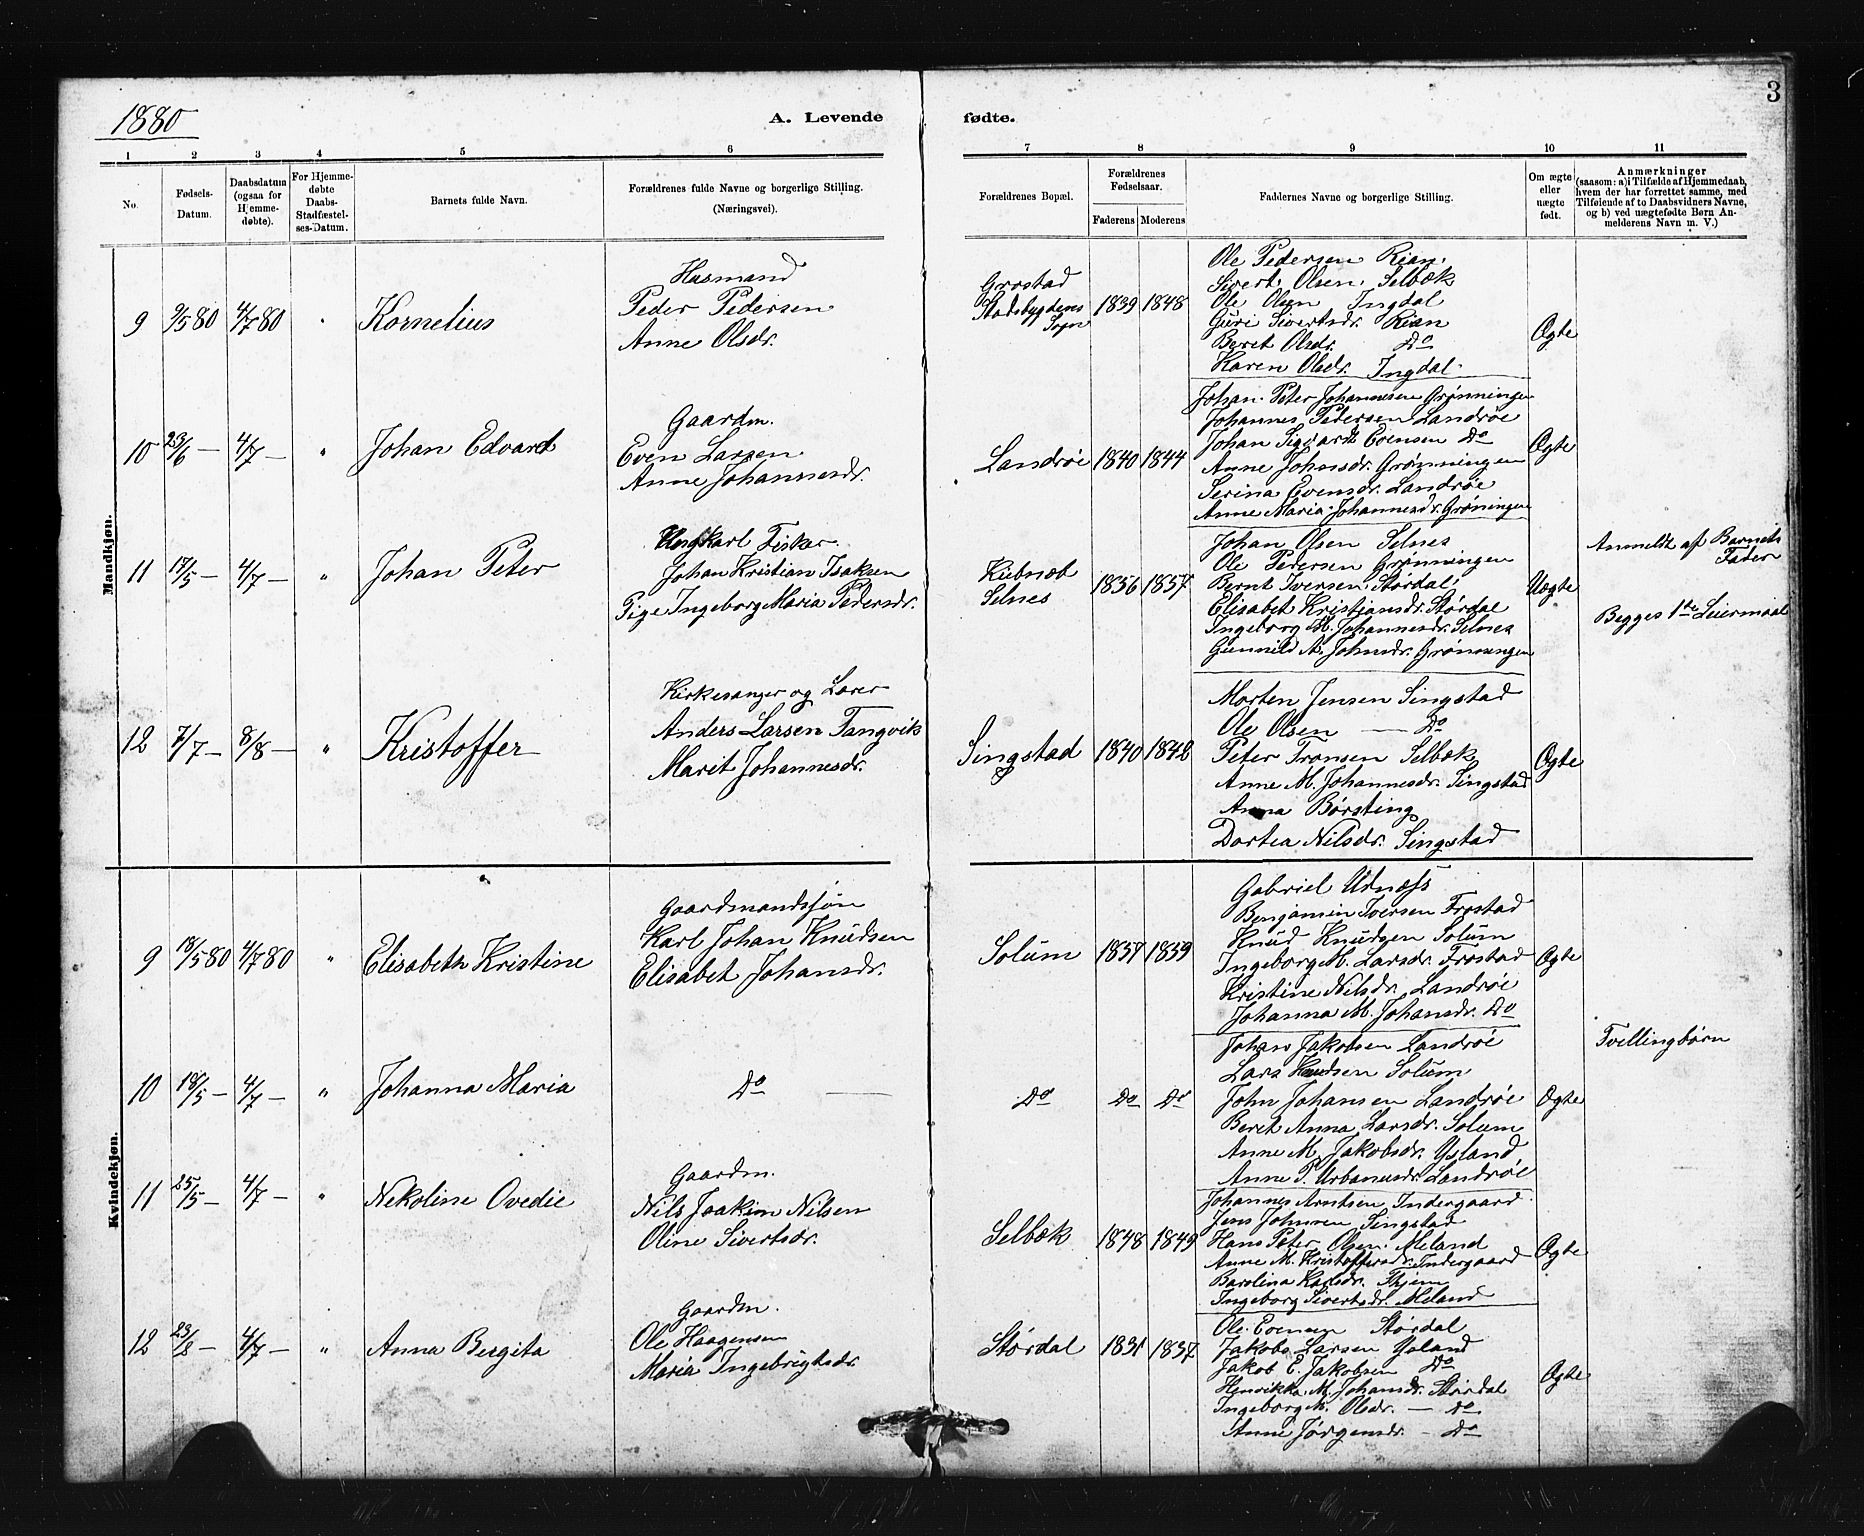 1880
A. Levende fødte.
3
1 2 3 4 5 6 7 8 9 10 11
No.
Fødsels-Datum.
Daabsdatum (ogsaa for Hjemmedøbte).
For Hjemmedøbte Daabs-Stadfæstelses-Datum.
Barnets fulde Navn.
Forældrenes fulde Navne og borgerlige Stilling.
(Næringsvei).
Forældrenes Bopæl.
Forældrenes Fødselsaar.
Faderens Moderens
Faddernes Navne og borgerlige Stilling.
Om ægte eller uægte født.
Anmærkninger
(saasom: a) i Tilfælde af Hjemmedaab, hvem der har forrettet samme, med Tilføiende af to Daabsvidners Navne, og b) ved uægtefødte Børn Anmelderens Navn m. V.)
Mandkjøn.
9 9/5 80 4/7 80 " Kornelius
Husmand
Peder Pedersen
Anne Olsdr.
Grostad
Stadsbygdens
Sogn
1839 1848
Ole Pedersen Rian
Sivert Olsen Selbæk
Ole Olsen Ingdal
Guri Sivertsdr. Rian
Beret Olsdr. Do
Karen Olsdr. Ingdal
Ægte
10 23/6 — 4/7 — " Johan Edvard
Gaardm.
Even Larsen
Anne Johannesdr.
Landrøe 1840 1844
Johan Peter Johannesen Grønningen
Johannes Pedersen Landrøe
Johan Sigvardt Evensen Do
Anne Johnsdr. Grønningen
Serina Evensdr. Landrøe
Anne Maria Johannesdr. Grøningen
Ægte
11 17/5 — 4/7 — " Johan Peter
Ungkarl Fisker
Johan Kristian Isaksen
Pige Ingeborg Maria Pedersdr.
Kubnæb
Selnes
1856 1857
Johan Olsen Selnes
Ole Pedersen Grønningen
Bernt Iversen Størdal
Elisabet Kristiansdr. Størdal
Ingeborg M. Johannesdr. Selnes
Gunnild A. Johnsdr. Grønningen
Uægte
Anmeldt af Barnets
Fader
Begges 1ste Leiermaal
12 7/7 — 8/8 — " Kristoffer
Kirkesanger og Lærer
Anders Larsen Tangvik
Marit Johannesdr.
Singstad 1840 1842
Morten Jensen Singstad
Ole Olsen — Do
Peter Tronsen Selbæk
Anne M. Johannesdr. Singstad
Anna Børsting
Dortea Nilsdr. Singstad
Ægte
Kvindekjøn.
9 18/5 80 4/7 80 " Elisabeth Kristine
Gaardmandssøn
Karl Johan Knudsen
Elisabet Johansdr.
Solum 1857 1859
Gabriel Udnæss
Benjamin Iversen Frostad
Knud Knudsen Solum
Ingeborg M. Larsdr. Frostad
Kristine Nilsdr. Landrøe
Johanna M. Johansdr. Do
Ægte
Tvillingbørn
10 18/5 — 4/7 — " Johanna Maria
Do —
Do Do Do
Johans Jakobsen Landrøe
Lars Knudsen Solum
John Johansen Landrøe
Beret Anna Larsdr. Solum
Anne M. Jakobsdr. Ysland
Anne P. Urbanusdr. Landrøe
Ægte
11 25/5 — 4/7 — " Nekoline Ovedie
Gaardm.
Nils Joakim Nilsen
Oline Sivertsdr.
Selbæk 1848 1849
Johannes Arntsen Indergaard
Jens Johnsen Singstad
Hans Peter Olsen Meland
Anne M. Kristoffersdr. Indergaard
Barolina Karlsdr.
Ingeborg Sivertsdr. Meland
Ægte
12 23/2 — 4/7 — " Anna Bergita
Gaardm.
Ole Haagensen
Maria Ingebrigtsdr.
Størdal 1831 1837
Ole Evensen Størdal
Jakob Larsen Ysland
Jakob E. Jakobsen Do
Henrikka M. Johansdr. Størdal
Ingeborg M. Olsdr. — Do
Anne Jørgensdr. — Do
Ægte